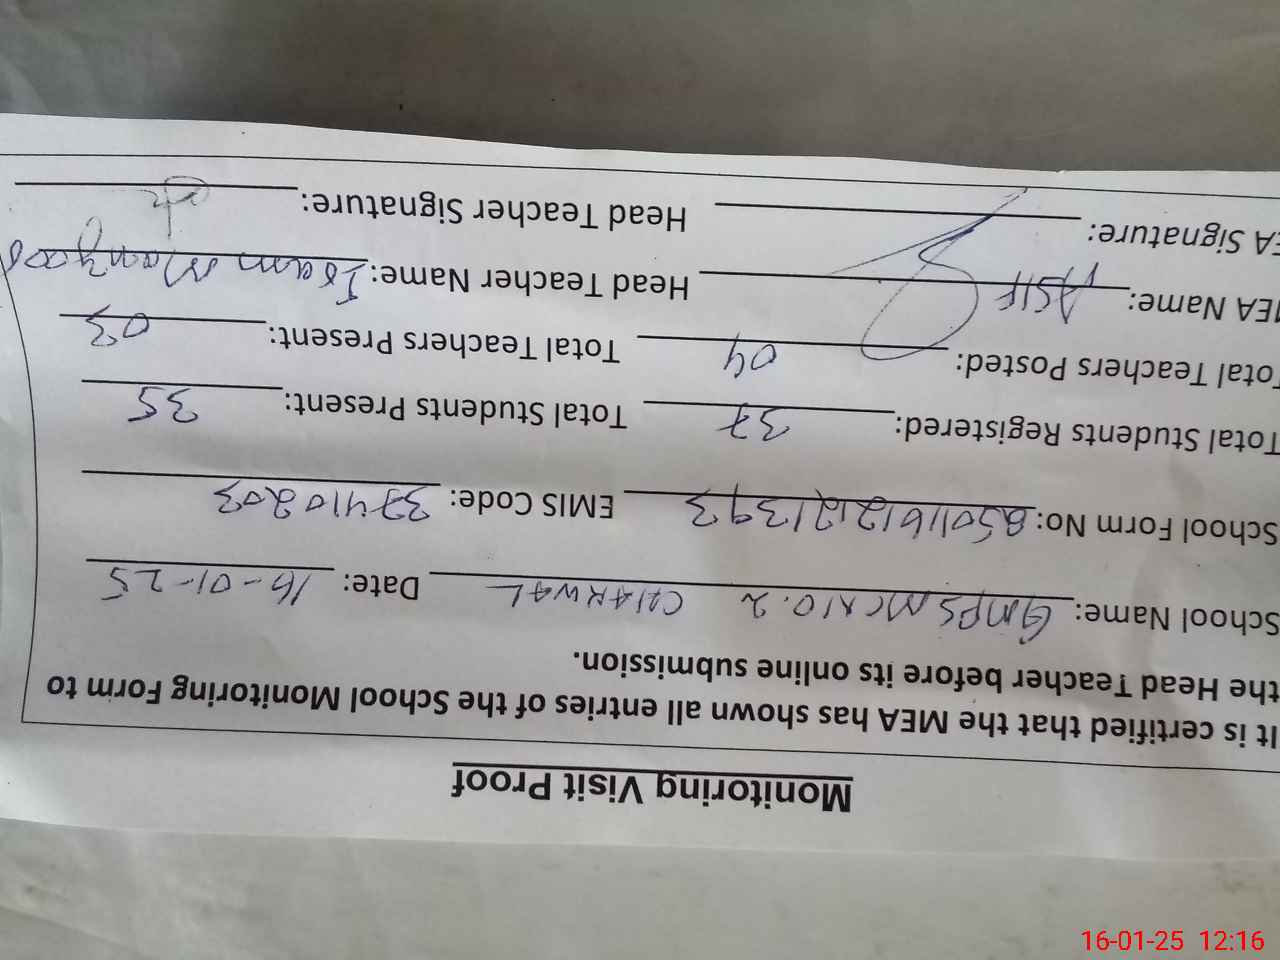 Monitoring Visit Proof
It is certified that the MEA has shown all entries of the School Monitoring Form to
the Head Teacher before its online submission.
School Name: GMPS MC NO.2 CHAKWAL Date: 16-01-25
School Form No: EMIS Code: 37410203
Total Students Registered: 37 Total Students Present: 35
Total Teachers Posted: 04 Total Teachers Present: 03
MEA Name: ASIF Head Teacher Name:
EA Signature: Head Teacher Signature:
16-01-25 12:16